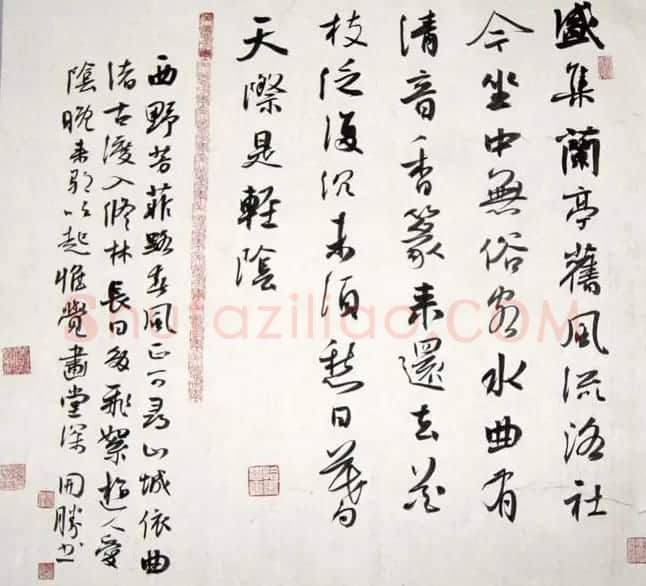 盛集蘭亭舊風流洛社
今坐中無俗客水曲有
清音香篆来還去花
枝泛復沉未須愁日暮
天際是輕陰
西野芳菲路春風正可尋山城依曲
渚古渡入修林長日多飛絮遊人愛
陰晚来歌吹起惟覺畫堂深 開勝书
Shufaziliao.COM